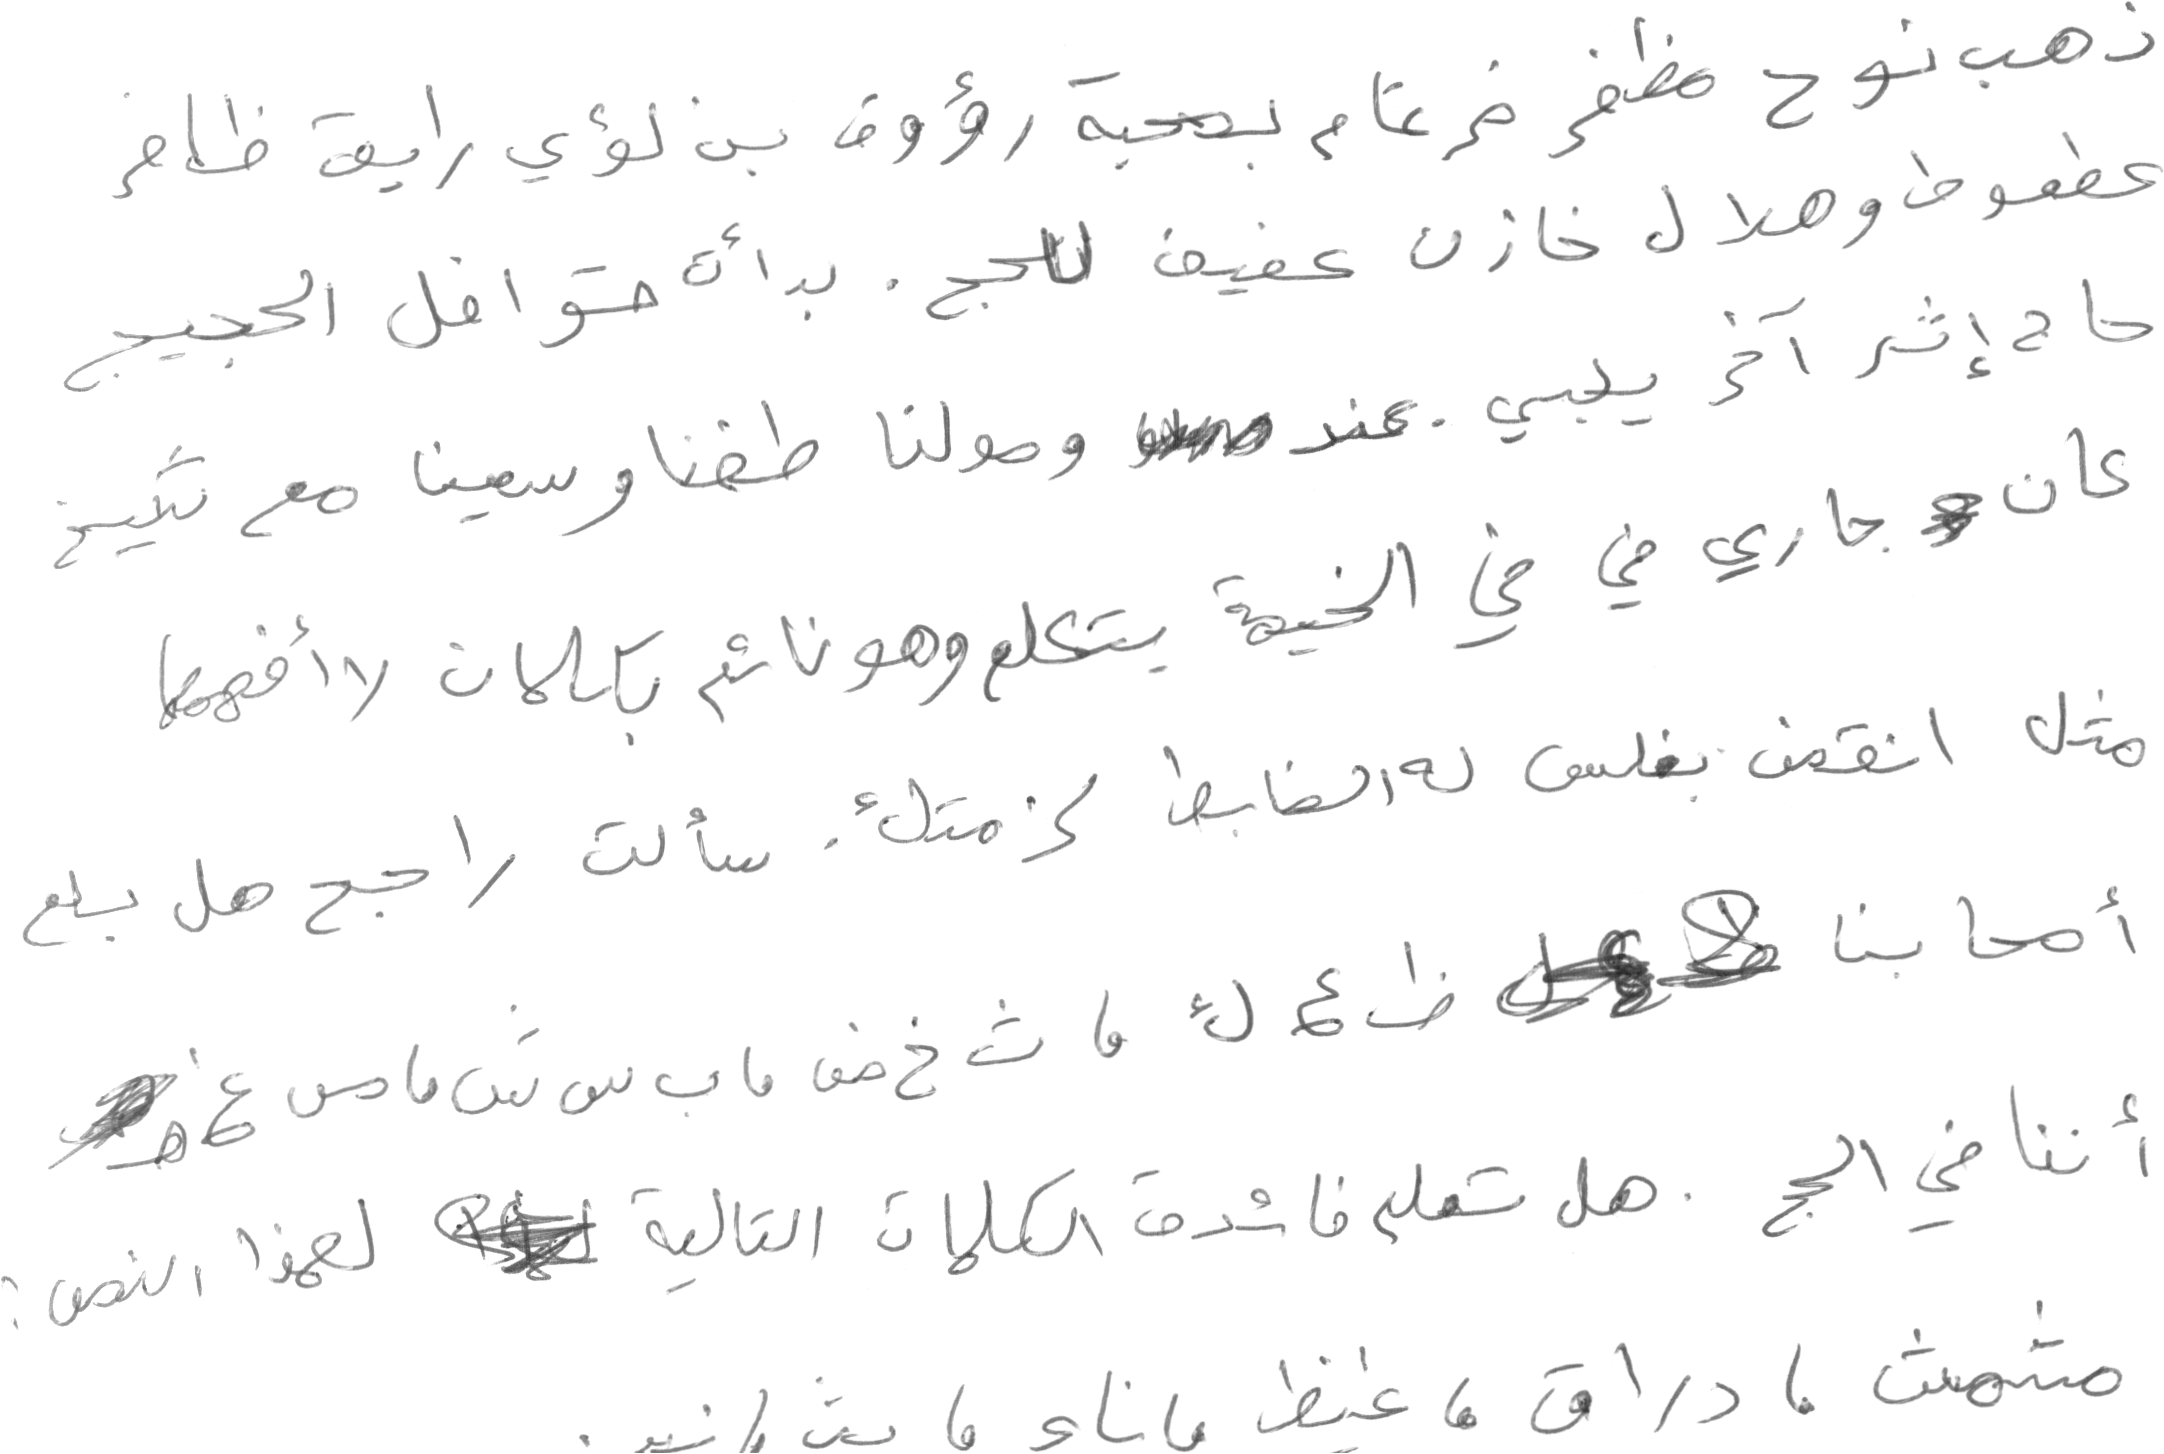 ذهب نوح مظفر ضرغام بصحبة رؤوف بن لؤي رايق ظافر
عطعوط وهلال خازن عفيف للحج . بدأت قوافل الحجيج
حاج إثر آخر يلبي . عند وصولنا طفنا وسعينا مع شيخ
كان جاري في في الخيمة يتكلم وهو نائم بكلمات لا أفهمها
مثل انقض بغلس له الضابط كزمتك . سألت راجح هل بلغ
أصحابنا ظ ع ك ، ث خ ض ، ب س ش ، ص غ هـ
أننا في الحج . هل تعلم فائدة الكلمات التالية لهذا النص :
مشمش ، دراق ، غيظ ، ناء ، .